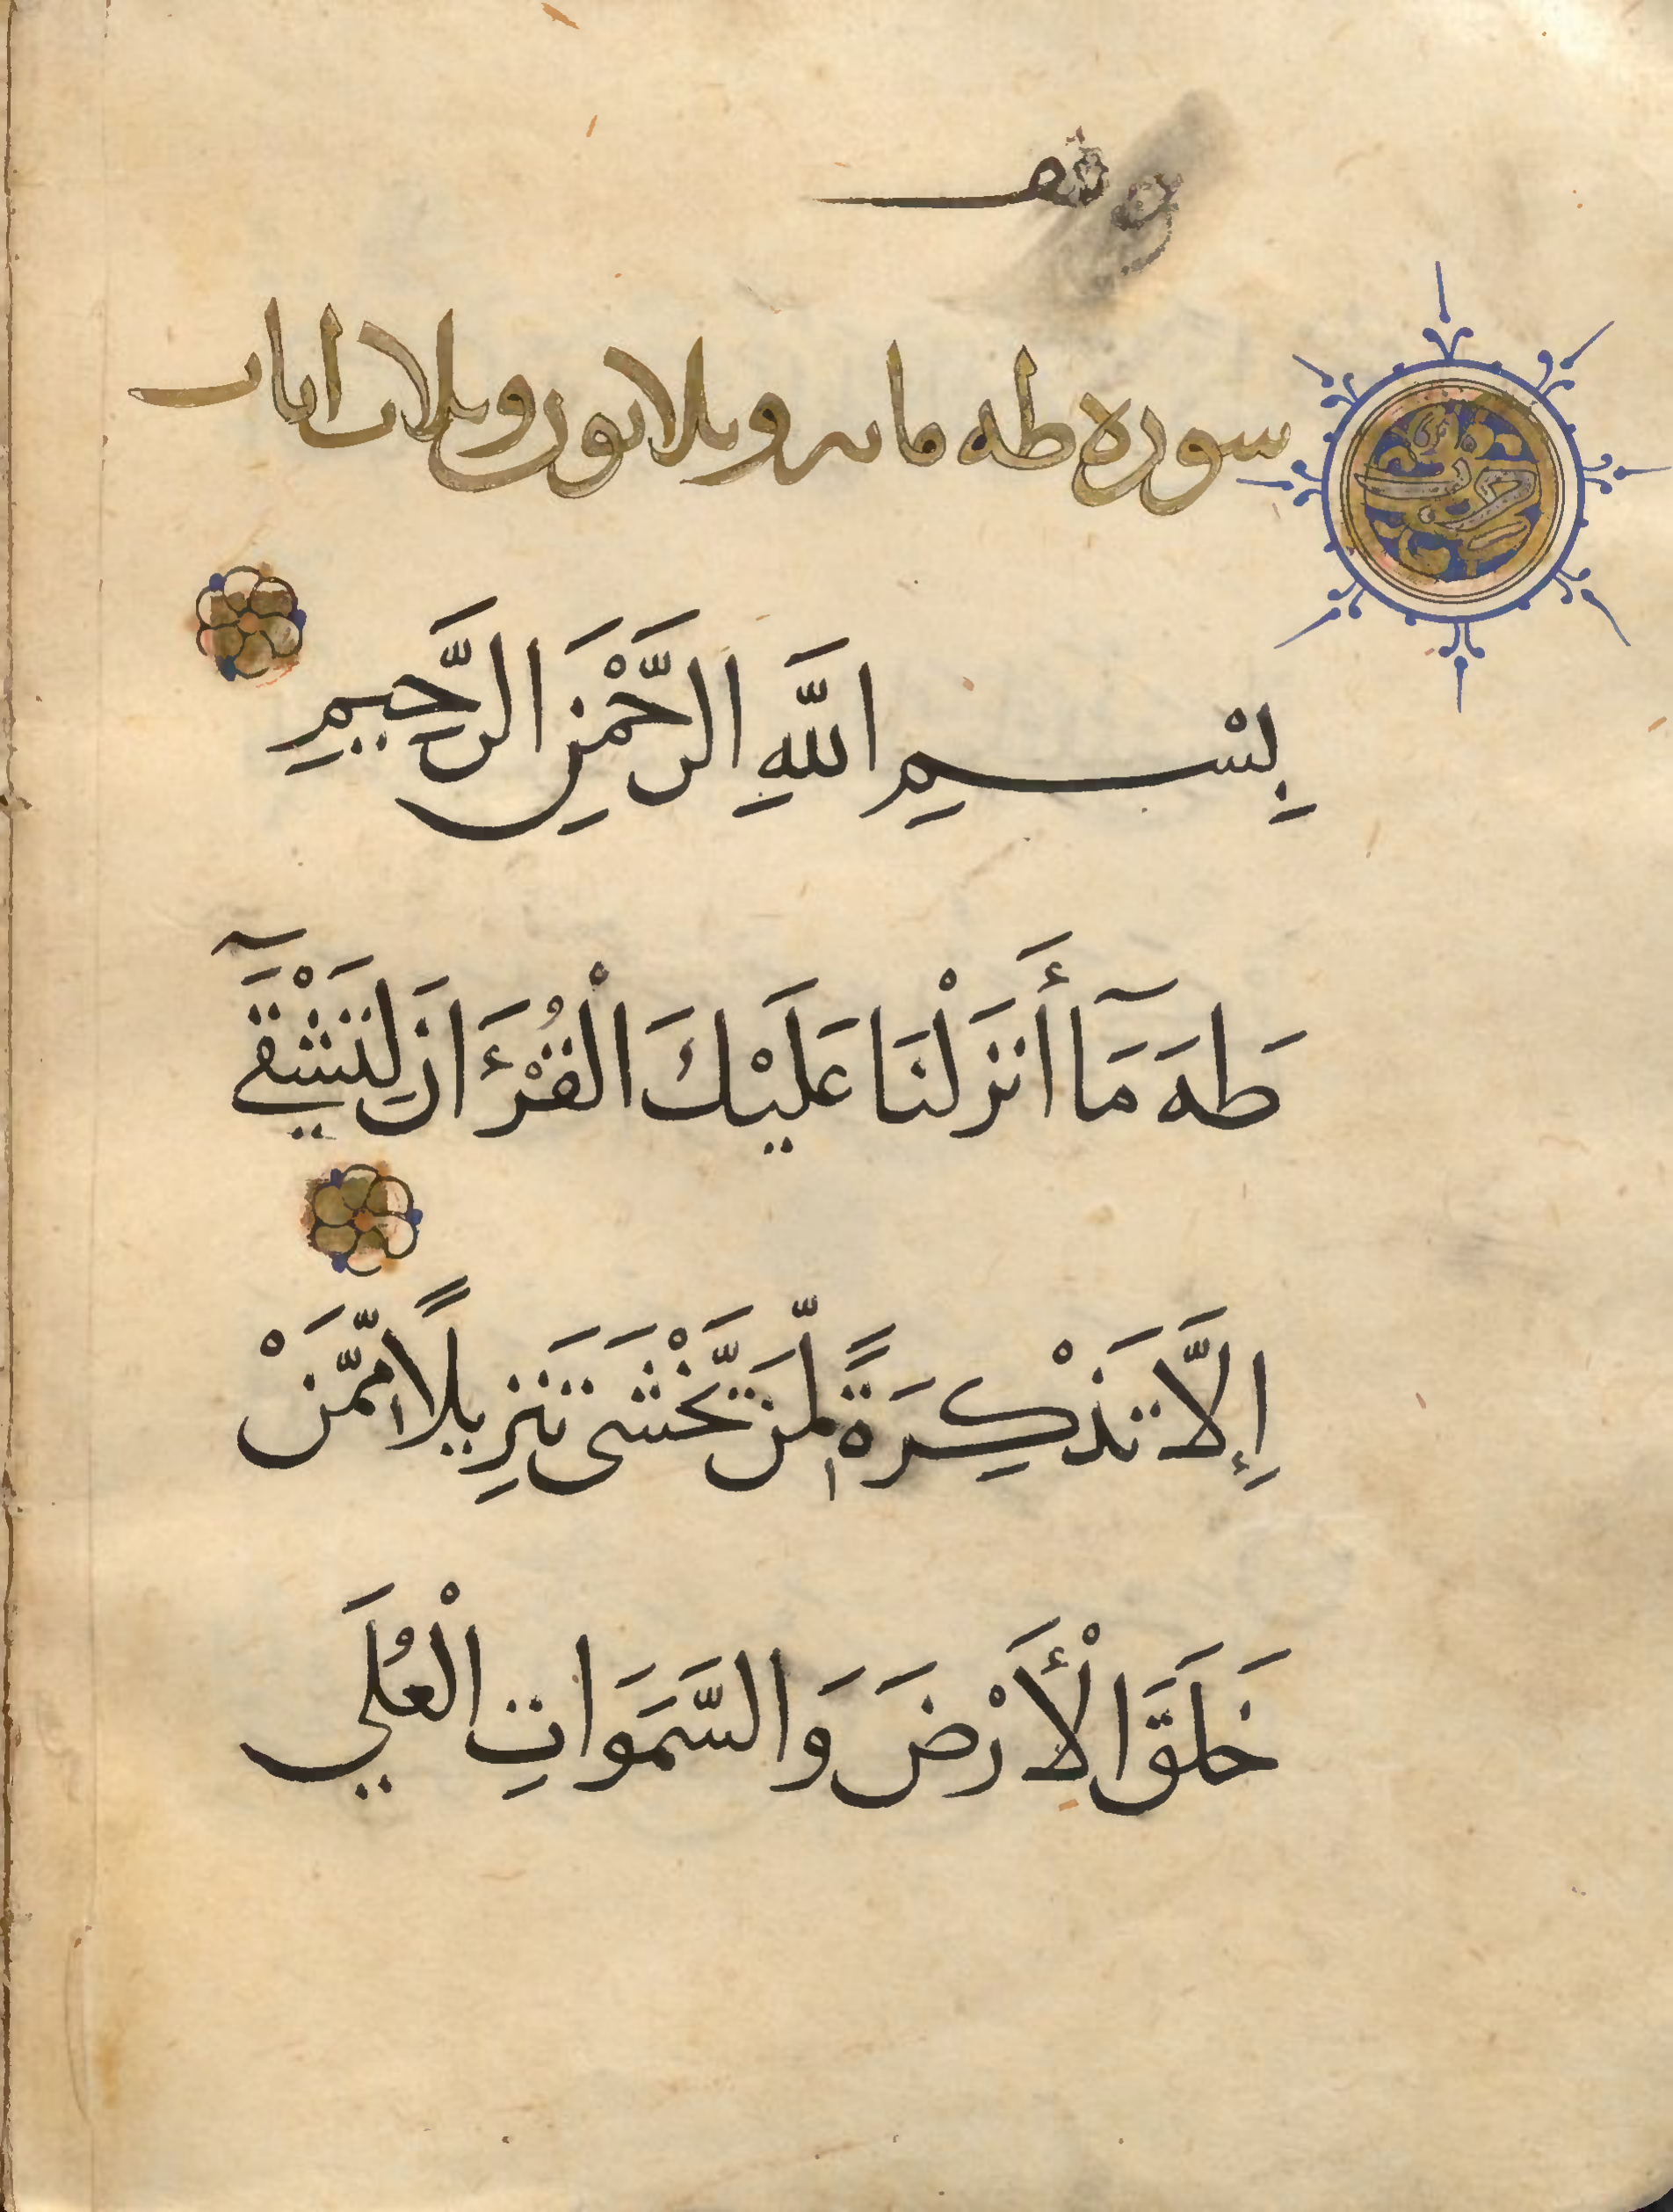 وقف
سورة طه مائة وثلاثون وثلاث آيات
حزب
بِسْمِ اللَّهِ الرَّحْمَٰنِ الرَّحِيمِ
طَهَ مَآ أَنزَلْنَا عَلَيْكَ الْقُرْءَانَ لِتَشْقَيٓ
إِلَّا تَذْكِرَةً لِّمَن يَّخْشَى تَنزِيلًا مِّمَّنْ
خَلَقَ الْأَرْضَ وَالسَّمَوَاتِ الْعُلَي